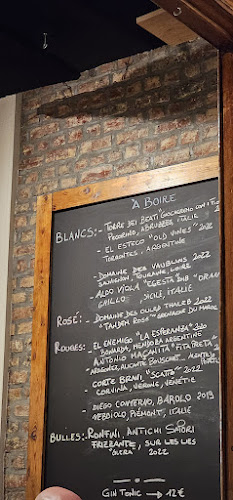 À BOIRE
BLANCS:- TORRE DEI BEATI GIOCHEREMO CON I
PECORINO, ABRUZZES ITALIE
- EL ESTECO "OLD VINES" 2022
TORRONTES, ARGENTINE
- DOMAINE DES VAUBLINS 2022
SAUVIGNON, TOURAINE, LOIRE
- ALDO VIOLA "EGESTA SUB"
GRILLO, SICILE, ITALIE
ROSÉ:- DOMAINE DES OULAD THALEB 2022
"TANDEM ROSÉ" GRENACHE DU MAROC
ROUGES:- EL ENEMIGO "LA ESPERANZA"
BONARDA, MENDOZA ARGENTINE
ANTONIO MAÇANITA "FITA PRETA"
ARAGONEZ, ALICANTE BOUSCHET
- CORTE BRAVI "SCAIA" 2022
CORVINA, VERONE, VÉNÉTIE
DIEGO CONTERNO, BAROLO 2019
NEBBIOLO, PIÉMONT, ITALIE
BULLES:- RONFINI, ANTICHI SAPORI
FRIZZANTE, SUR LIES
2022
GIN TONIC → 12€